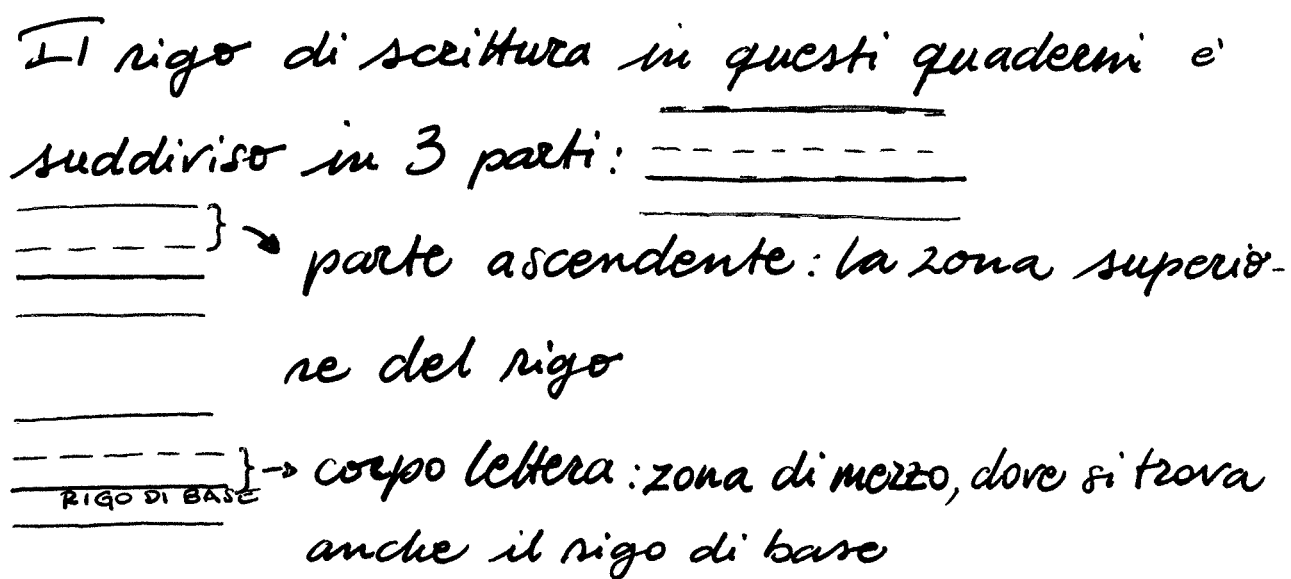 Il rigo di scrittura in questi quaderni e'
suddiviso in 3 parti:
parte ascendente: la zona superio-
re del rigo
corpo lettera: zona di mezzo, dove si trova
RIGO DI BASE
anche il rigo di base